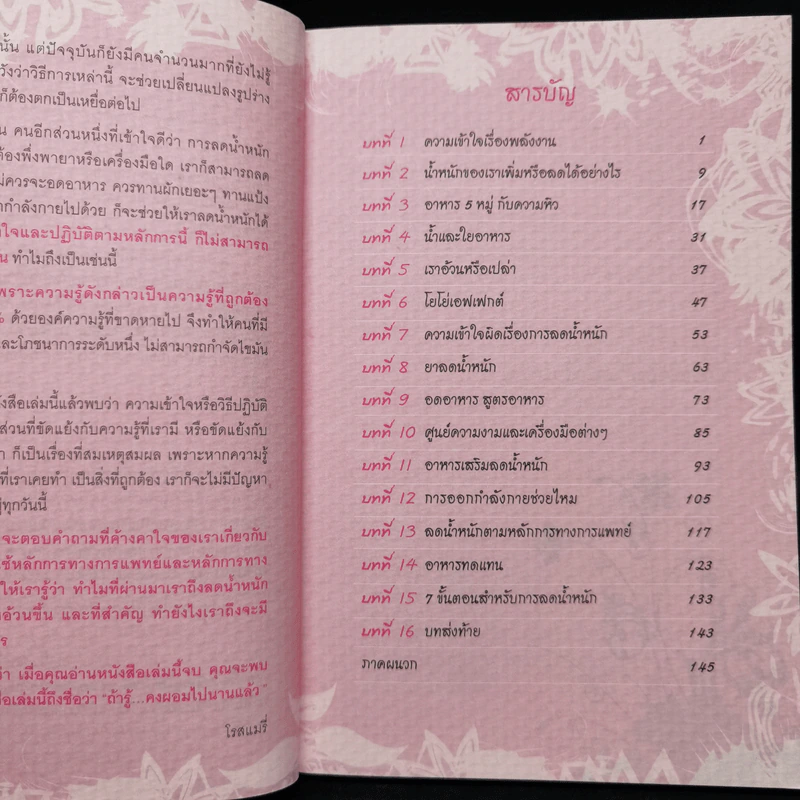 นั้น แต่ปัจจุบันก็ยังมีคนจำนวนมากที่ยังไม่รู้
วังว่าวิธีการเหล่านี้ จะช่วยเปลี่ยนแปลงรูปร่าง
ก็ต้องตกเป็นเหยื่อต่อไป
น คนอีกส่วนหนึ่งที่เข้าใจดีว่า การลดน้ำหนัก
ต้องพึ่งพายาหรือเครื่องมือใด เราก็สามารถลด
ม่ควรจะอดอาหาร ควรทานผักเยอะๆ ทานแป้ง
กำลังกายไปด้วย ก็จะช่วยให้เราลดน้ำหนักได้
าใจและปฏิบัติตามหลักการนี้ ก็ไม่สามารถ
น ทำไมถึงเป็นเช่นนี้
พราะความรู้ดังกล่าวเป็นความรู้ที่ถูกต้อง
% ด้วยองค์ความรู้ที่ขาดหายไป จึงทำให้คนที่มี
และโภชนาการระดับหนึ่ง ไม่สามารถกำจัดไขมัน
ังสือเล่มนี้แล้วพบว่า ความเข้าใจหรือวิธีปฏิบัติ
ส่วนที่ขัดแย้งกับความรู้ที่เรามี หรือขัดแย้งกับ
า ก็เป็นเรื่องที่สมเหตุสมผล เพราะหากความรู้
ที่เราเคยทำ เป็นสิ่งที่ถูกต้อง เราก็จะไม่มีปัญหา
ู่ทุกวันนี้
จะตอบคำถามที่ค้างคาใจของเราเกี่ยวกับ
ช้หลักการทางการแพทย์และหลักการทาง
ให้เรารู้ว่า ทำไมที่ผ่านมาเราถึงลดน้ำหนัก
อ้วนขึ้น และที่สำคัญ ทำยังไงเราถึงจะมี
ร
ว่า เมื่อคุณอ่านหนังสือเล่มนี้จบ คุณจะพบ
ือเล่มนี้ถึงชื่อว่า "ถ้ารู้...คงผอมไปนานแล้ว"
โรสแมรี่
สารบัญ
บทที่ 1 ความเข้าใจเรื่องพลังงาน 1
บทที่ 2 น้ำหนักของเราเพิ่มหรือลดได้อย่างไร 9
บทที่ 3 อาหาร 5 หมู่ กับความหิว 17
บทที่ 4 น้ำและใยอาหาร 31
บทที่ 5 เราอ้วนหรือเปล่า 37
บทที่ 6 โยโย่เอฟเฟกต์ 47
บทที่ 7 ความเข้าใจผิดเรื่องการลดน้ำหนัก 53
บทที่ 8 ยาลดน้ำหนัก 63
บทที่ 9 อดอาหาร สูตรอาหาร 73
บทที่ 10 ศูนย์ความงามและเครื่องมือต่างๆ 85
บทที่ 11 อาหารเสริมลดน้ำหนัก 93
บทที่ 12 การออกกำลังกายช่วยไหม 105
บทที่ 13 ลดน้ำหนักตามหลักการทางการแพทย์ 117
บทที่ 14 อาหารทดแทน 123
บทที่ 15 7 ขั้นตอนสำหรับการลดน้ำหนัก 133
บทที่ 16 บทส่งท้าย 143
ภาคผนวก 145